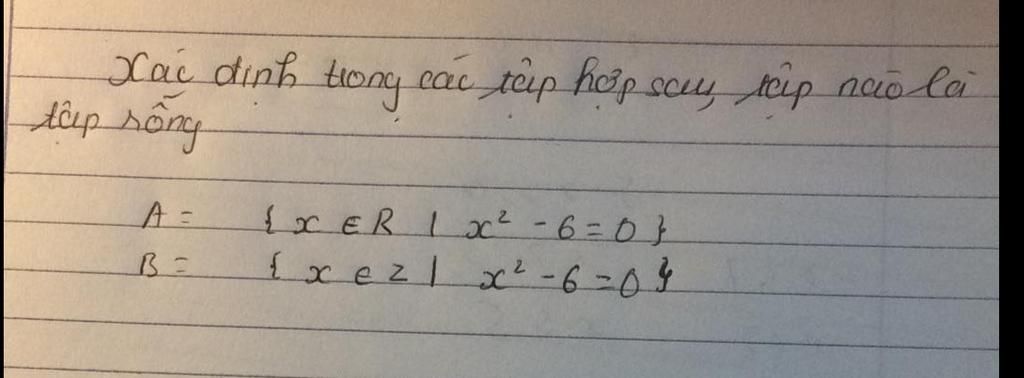 Xác định trong các tập hợp sau, tập nào là
tập rỗng
A = { x ∈ R | x² - 6 = 0 }
B = { x ∈ Z | x² - 6 = 0 }